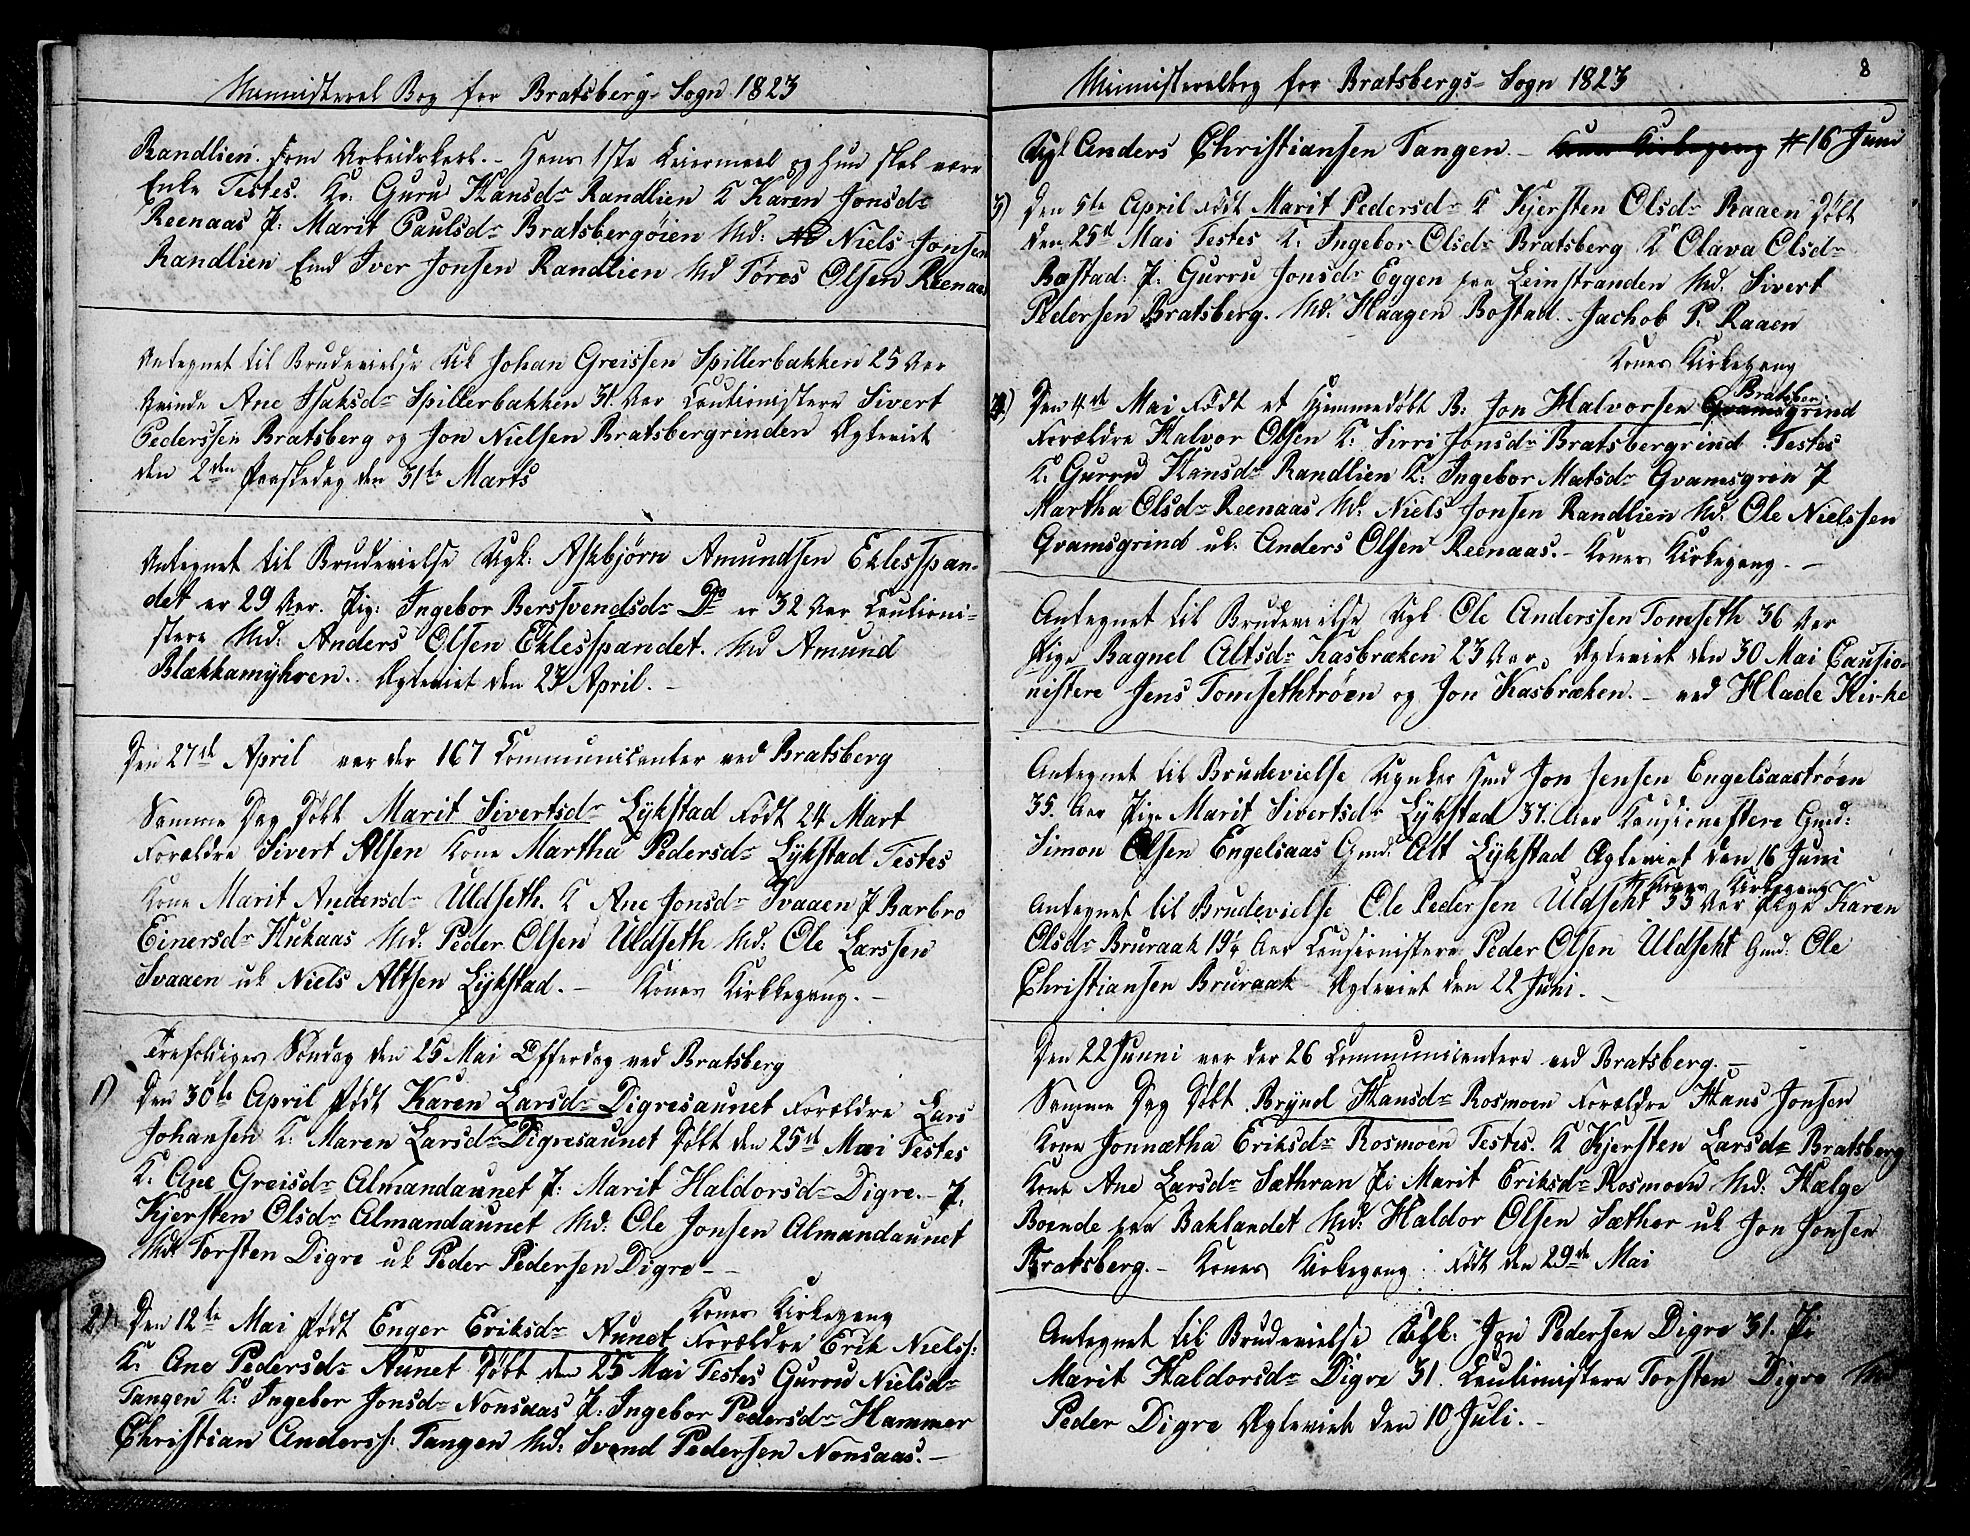 Ministerial Bog for Bratsberg Sogn 1823
Randlien. som Arbeidskarl. - Hans 1ste Leiermaal og hun skal være
Enke Testes. Ko: Guru Hansdr Randlien K Karen Jonsdr
Reenaas P: Marit Paulsdr Bratsbergøien Md: Niels Jonsen
Randlien Emd Iver Jonsen Randlien Md Tøres Olsen Reenaas
Antegnet til Brudevielse Uk Johan Greissen Spillerbakken 25 Aar
Qvinde Ane Isaksdr Spillerbakken 31. Aar Cautionistere Sivert
Pederssen Bratsberg og Jon Nielsen Bratsbergrinden Ægteviet
den 2den Paaskedag den 31te Marts
Antegnet til Brudevielse Ugk: Asbjørn Amundsen Eklesspan-
det er 29 Aar. Pig: Ingebor Berssvendsdr Do er 32 Aar Cautioni-
stere Md: Anders Olsen Eklesspandet. Md Amund
Blækkamyhren. Ægteviet den 23 April. -
Den 27de April var der 167 Communicanter ved Bratsberg
Samme Dag Døbt Marit Sivertsdr Lykstad Født 24 Mart
Forældre Sivert Altsen Kone Martha Pedersdr Lykstad Testes
Kone Marit Andersdr Uldseth. K Ane Jonsdr Svaaen P Barbro
Einersdr Hukaas Md: Peder Olsen Uldseth Md: Ole Larssen
Svaaen uk Niels Altsen Lykstad. - Konens Kirkkegang. -
Trefoldigheds Søndag den 25 Mai Offerdag ved Bratsberg
1) Den 30te April født Karen Larsdr Digresaunet Forældre Lars
Johansen K: Maren Larsdr Digresaunet Døbt den 25de Mai Testes
K: Ane Greisdr Almandaunet P: Marit Haldorsdr Digre. - P:
Kjersten Olsdr Almandaunet Md: Ole Jonsen Almandaunet
Md Torsten Digre uk Peder Pedersen Digre -
Konens Kirkegang
2) Den 12te Mai født Enger Eriksdr Aunet Forældre Erik Nielss:
K: Ane Pedersdr Aunet Døbt den 25 Mai Testes Gurru Nielsdr
Tangen K: Ingebor Jonsdr Nonsaas P: Ingebor Pedersdr Hammer
Christian Anderss: Tangen Md: Svend Pedersen Nonsaas. -
Ministerialbog for Bratsbergs Sogn 1823
8
Ugk Anders Christiansen Tangen. - Konens Kirkegang # 16 Juni
3) Den 5te April Født Marit Pedersdr K Kjersten Olsdr Raaen Døbt
den 25de Mai Testes K: Ingebor Olsdr Bratsberg K Olava Olsdr
Bostad: P: Gurru Jonsdr Eggen fra Leinstranden Md. Sivert
Pedersen Bratsberg. Md. Haagen Bostad. Jachob P. Raaen
Konens Kirkegang
4) Den 4de Mai Født et Hjemmedøbt B: Jon Halvorsen Qvamsgrind Bratsber
Forældre Halvor Olsen K: Sirri Jonsdr Bratsbergrind Testes
K: Gurru Hansdr Randlien K: Ingebor Matsdr Qvamsgrin P
Martha Olsdr Reenaas Md: Niels Jonsen Randlien Md: Ole Nielssen
Qvamsgrind uk. Anders Olsen Reenaas. - Konens Kirkegang. -
Antegnet til Brudevielse Ugk Ole Anderssen Tomseth 36 Aar
Pige Ragnel Altsdr Kasbræken 23 Aar, Ægteviet den 30 Mai Causio-
nistere Jens Tomsethtrøen og Jon Kasbræken. - ved Hlade Kirke
Antegnet til Brudevielse Ugnkar Gmd Jon Jensen Engelsaastrøen
35. Aar Pige Marit Sivertsdr Lykstad 37. Aar Causionistere Gmd:
Simon Olsen Engelsaas Gmd: Alt Lykstad Ægteviet den 16 Juni
# Konens Kirkegang
Antegnet til Brudevielse Ole Pedersen Uldseht 33 Aar Pige Karen
Olsdr Bruraak 19½ Aar Causionistere Peder Olsen Uldseht Gmd: Ole
Christiansen Bruraak Ægteviet den 22 Juni. -
Den 22 Junni var der 26 Communicantere ved Bratsberg. -
Samme Dag Døbt Brynel Hansdr Rosmoen Forældre Hans Jonsen
Kone Jonnætha Eriksdr Rosmoen Testes. K Kjersten Larsdr Bratsberg
Kone Ane Larsdr Sæthran P: Marit Eriksdr Rosmoen Md: Hælge
Boende paa Baklandet Md: Haldor Olsen Sæther uk Jon Jonsen
Bratsberg. - Konens Kirkegang. Født den 29de Mai
Antegnet til Brudevielse Ugk: Jon Pedersen Digre 31. P:
Marit Haldorsdr Digre 31. Cautionistere Torsten Digre Md
Peder Digre Ægteviet den 10 Juli. -